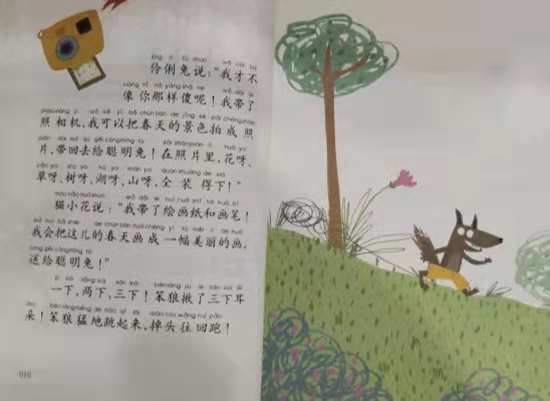 伶俐兔说：“我才不
像你那样傻呢！我带了
照相机，我可以把春天的景色拍成照
片，带回去给聪明兔！在照片里，花呀、
草呀、树呀、湖呀、山呀，全装得下！”
猫小花说：“我带了绘画纸和画笔！
我会把这儿的春天画成一幅美丽的画，
送给聪明兔！”
一下，两下，三下！笨狼揪了三下耳
朵！笨狼猛地跳起来，掉头往回跑！
010